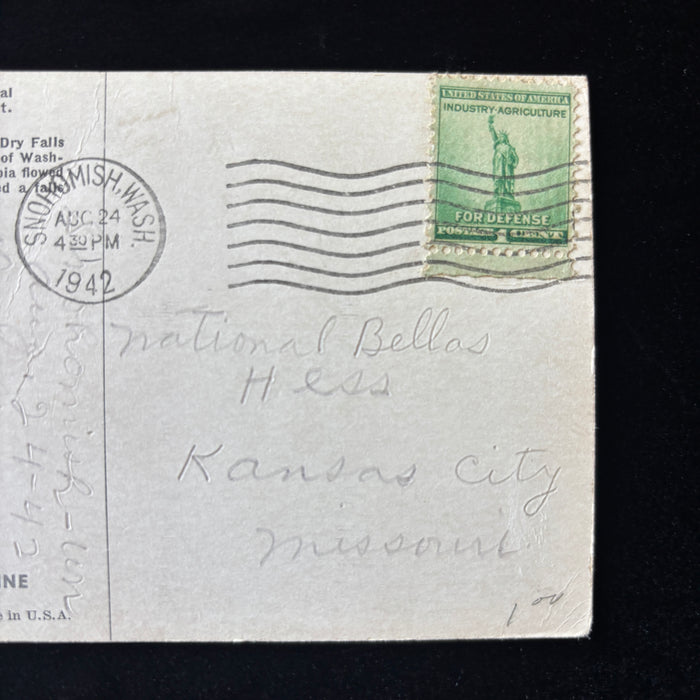 al
t.
Dry Falls
of Wash-
bia flowed
ed a falls
SNOHOMISH, WASH.
AUG 24
4 30 PM
1942
UNITED STATES OF AMERICA
INDUSTRY·AGRICULTURE
FOR DEFENSE
POSTAGE 1 CENTS
National Bellas
Hess
Kansas City
Missouri
Snohomish-Wn
Aug 24-42
INE
e in U.S.A.
1 00